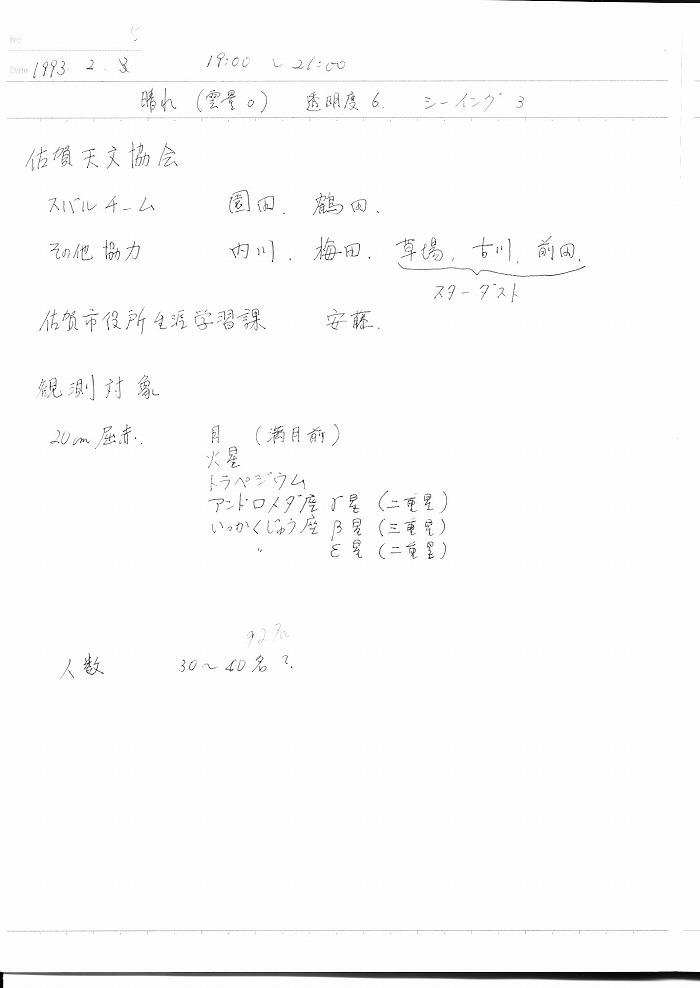 No. 5
Date 1993. 2. 19:00 ～ 21:00
晴れ (雲量0) 透明度 6. シーイング 3
佐賀天文協会
スバルチーム 園田. 鶴田.
その他協力 内川. 梅田. 草場. 古川. 前田.
スターダスト
佐賀市役所生涯学習課 安藤.
観測対象
20cm屈赤. 月 (満月前)
火星
トラペジウム
アンドロメダ座 γ星 (二重星)
いっかくじゅう座 β星 (三重星)
〃 ε星 (二重星)
人数 30～40名?.